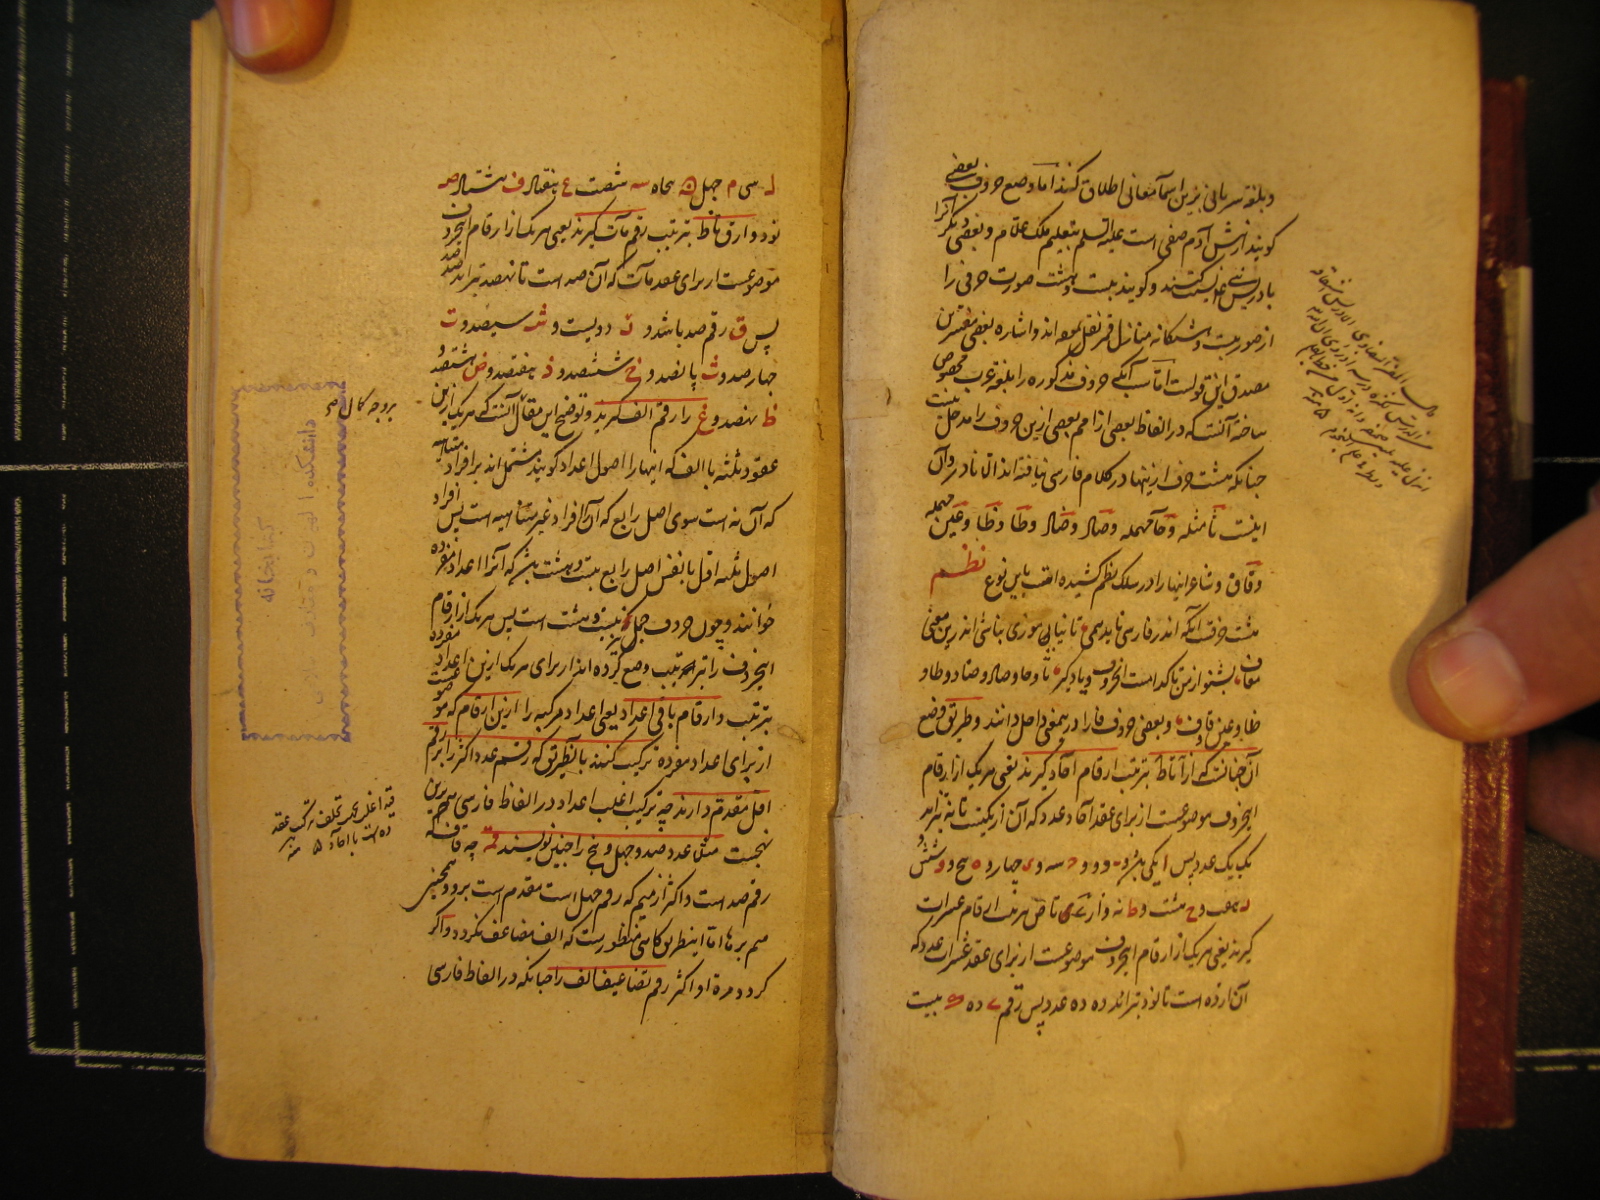 و بلغة سریانی نیز این اسما معانی اطلاق کنند اما وضع حروف بعضی
گویند از شش آدم صفی است علیه السلم بتعلیم ملک علام و بعضی دیگر آنرا
بادریس نبی نسبت کنند و گویند بیست و هشت صورت حرفی را
از صور بیست و هشتگانه منازل قمر نقل نموده اند و اشاره بعضی مفسرین
مصدق این قولست اما سبب آنکه حروف مذکوره را بلغة عرب مخصوص
ساخته آنست که در الفاظ بعضی از امم بعضی ازین حروف را مدخل نیست
چنانکه هشت حرف از اینها در کلام فارسی نیافته اند الا نادر و آن
اینست ثا مثلثه و حا مهمله و صاد و ضاد و طا و ظا و عین مهمله
و قاف و شاعر اینها را در سلک نظم کشیده است باین نوع نظم
هشت حرفست آنکه اندر فارسی ناید همی تا نیاموزی نباشی اندرین معنی
معاف بشنو از من تا کدامست آن حروف و یاد گیر ثا و حا و صاد و ضاد و طا و
ظا و عین و قاف و بعضی حروف فا را در همین داخل دانند و طریق وضع
آن چنانست که از ا تا ط بترتیب ارقام آحاد گیرند یعنی هر یک از ارقام
این حروف موضوعست از برای عقد آحاد عدد که آن از یکست تا نه بتزاید
یک یک عدد پس ا یکی بود و ب دو و ج سه و د چهار و ه پنج و و شش و
ز هفت و ح هشت و ط نه و از ی تا ص بترتیب ارقام عشرات
گیرند یعنی هر یک از ارقام این حروف موضوعست از برای عقد عشرات عدد که
آن از ده است تا نود بتزاید ده ده عدد پس رقم ی ده ک بیست
ل سی م چهل ن پنجاه س شصت ع هفتاد ف هشتاد ص
نود و از ق تا ظ بترتیب رقم مآت گیرند یعنی هر یک از ارقام این حروف
موضوعست از برای عقد مآت که آن صد است تا نهصد بتزاید صد صد
پس ق رقم صد باشد و ر دویست و ش سیصد و ت
چهارصد و ث پانصد و خ ششصد و ذ هفتصد و ض هشتصد و
ظ نهصد و غ را رقم الف گیرند و توضیح این مقال آنست که هر یک ازین
عقود ثلثه با الف که اینها را اصول اعداد گویند مشتمل اند بر افراد متناهیه
که آن نه است سوی اصل رابع که آن را افراد غیر متناهیه است پس افراد
اصول ثلثه اقل با نفس اصل رابع بیست و هشت باشد که آنرا اعداد مفرده
خوانند و چون حروف جمل نیز بیست و هشت است پس هر یک از ارقام
این حروف را بترتیب وضع کرده اند از برای هر یک ازین اعداد مفرده
بترتیب و ارقام باقی اعداد یعنی اعداد مرکبه را ازین ارقام که موضوعست
از برای اعداد مفرده ترکیب کنند بآنطریق که رقم عدد اکثر را بر رقم
اقل مقدم دارند چه ترکیب اغلب اعداد در الفاظ فارسی هم برین
نهجست مثلا عدد صد و چهل و پنج را چنین نویسند قمه چه قاف که
رقم صد است و اکثر از میم که رقم چهل است مقدم است برو و همچنین
میم بر ها اما اینطریق گاهی منظور است که الف مضاعف نگردد و اگر
گردد مرة او اکثر رقم تضاعیف الف را چنانکه در الفاظ فارسی
بر وجه کمال
کتابخانه
دانشکده الهیات و معارف اسلامی